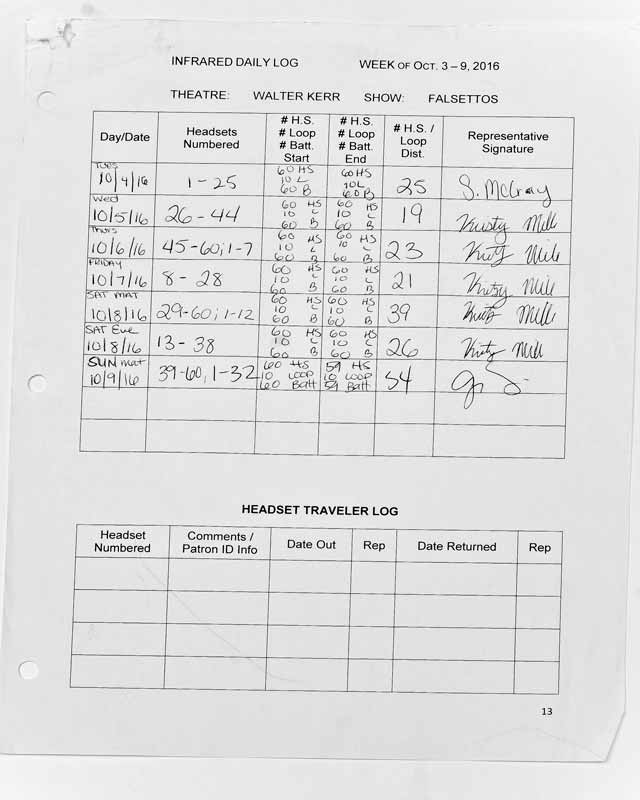 INFRARED DAILY LOG WEEK OF OCT. 3 – 9, 2016
THEATRE: WALTER KERR SHOW: FALSETTOS
Day/Date Headsets Numbered # H.S. # Loop # Batt. Start # H.S. # Loop # Batt. End # H.S. / Loop Dist. Representative Signature
TUES 10/4/16 1 - 25 60 HS 10 L 60 B 60 HS 10 L 60 B 25 S. McCray
Wed 10/5/16 26 - 44 60 HS 10 L 60 B 60 HS 10 L 60 B 19 Kristy Mill
Thurs 10/6/16 45-60; 1-7 60 HS 10 L 60 B 60 HS 10 L 60 B 23
FRIDAY 10/7/16 8 - 28 60 HS 10 L 60 B 60 HS 10 L 60 B 21
SAT MAT 10/8/16 29-60; 1-12 60 HS 10 L 60 B 60 HS 10 L 60 B 39
SAT Eve 10/8/16 13 - 38 60 HS 10 L 60 B 60 HS 10 L 60 B 26
SUN mat 10/9/16 39-60, 1-32 60 HS 10 LOOP 60 Batt 59 HS 10 LOOP 59 Batt 54
HEADSET TRAVELER LOG
Headset Numbered Comments / Patron ID Info Date Out Rep Date Returned Rep
13